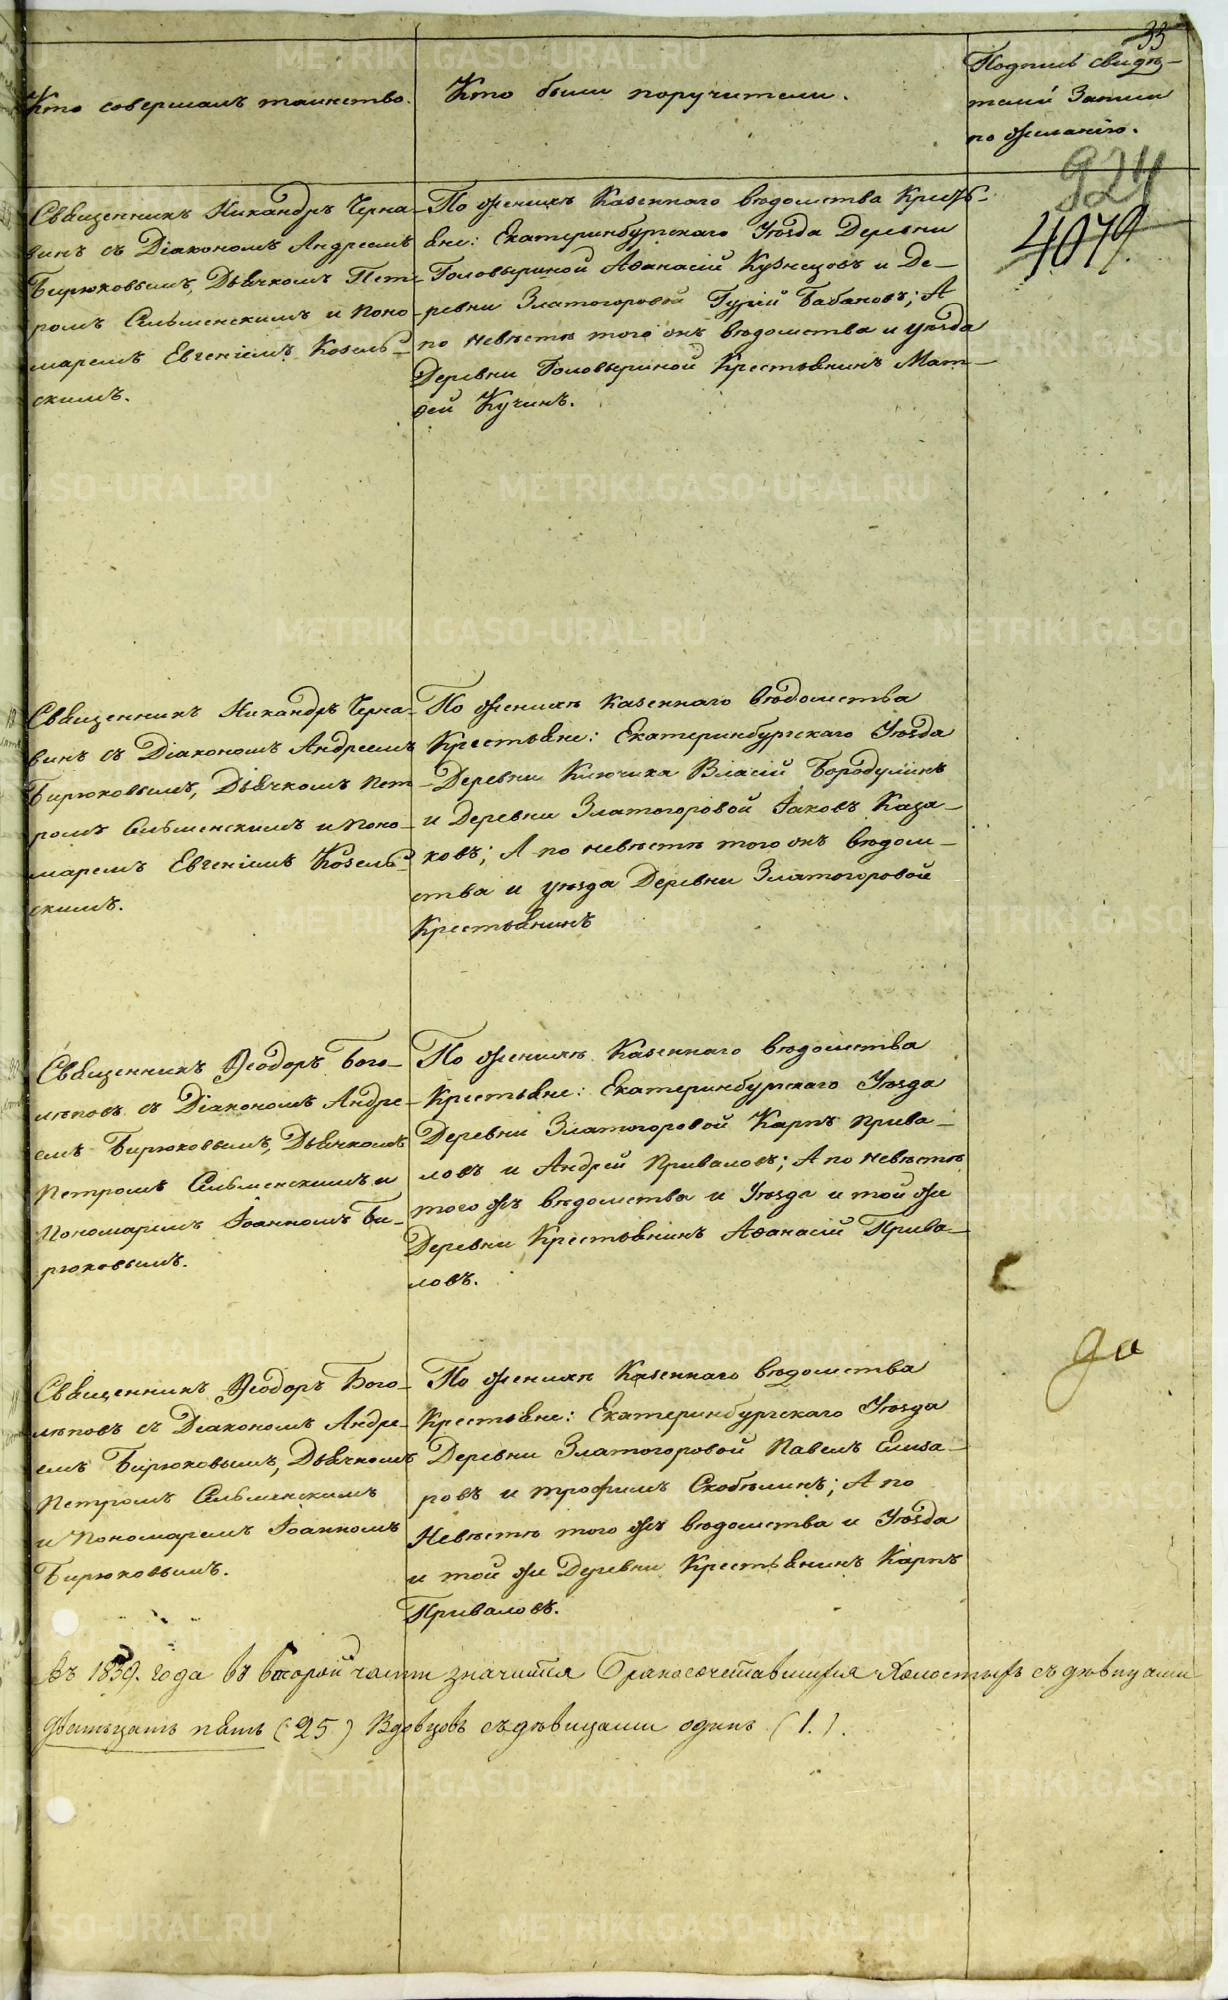 33
Кто совершалъ таинство.
Кто были поручители.
Подпись свидѣ-
телей Записи
по желанію.
924
4079.
Священникъ Никандръ Черна-
винъ съ Діакономъ Андреемъ
Бирюковымъ, Дьячкомъ Пет-
ромъ Сельменскимъ и поно-
маремъ Евгеніемъ Козель-
скимъ.
По женихѣ Казеннаго вѣдомства Крестья-
яне: Екатеринбургскаго Уѣзда Деревни
Головыриной Аѳанасій Кузнецовъ и Де-
ревни Златогоровой Гурій Бабановъ; А
по невѣстѣ того жъ вѣдомства и уѣзда
Деревни Головыриной Крестьянинъ Мат-
ѳей Кучинъ.
Священникъ Никандръ Черна-
винъ съ Діакономъ Андреемъ
Бирюковымъ, Дьячкомъ Пет-
ромъ Сельменскимъ и поно-
маремъ Евгеніемъ Козель-
скимъ.
По женихѣ казеннаго вѣдомства
Крестьяне: Екатеринбургскаго Уѣзда
Деревни Ключика Власій Бородулинъ
и Деревни Златогоровой Іаковъ Каза-
ковъ; А по невѣстѣ того жъ вѣдом-
ства и уѣзда Деревни Златогоровой
Крестьянинъ
Священникъ Ѳеодоръ Бого-
лѣповъ съ Діакономъ Андре-
емъ Бирюковымъ, Дьячкомъ
Петромъ Сельменскимъ и
Пономаремъ Іоанномъ Би-
рюковымъ.
По женихѣ Казеннаго вѣдомства
Крестьяне: Екатеринбургскаго Уѣзда
Деревни Златогоровой Карпъ Прива-
ловъ и Андрей Приваловъ; А по невѣстѣ
того жъ вѣдомства и Уѣзда и той же
Деревни Крестьянинъ Аѳанасій Прива-
ловъ.
Священникъ Ѳеодоръ Бого-
лѣповъ съ Діакономъ Андре-
емъ Бирюковымъ, Дьячкомъ
Петромъ Сельменскимъ
и Пономаремъ Іоанномъ
Бирюковымъ.
По женихѣ Казеннаго вѣдомства
Крестьяне: Екатеринбургскаго Уѣзда
Деревни Златогоровой Павелъ Елиза-
ровъ и Трофимъ Скобѣлинъ; А по
Невѣстѣ того жъ вѣдомства и Уѣзда
и той же Деревни Крестьянинъ Карпъ
Приваловъ.
Въ 1839. года въ второй части значится Бракосочетавшихся Холостыхъ съ дѣвицами
дватцать пять (25) Вдовцовъ съ дѣвицами одинъ (1.).
METRIKI.GASO-URAL.RU